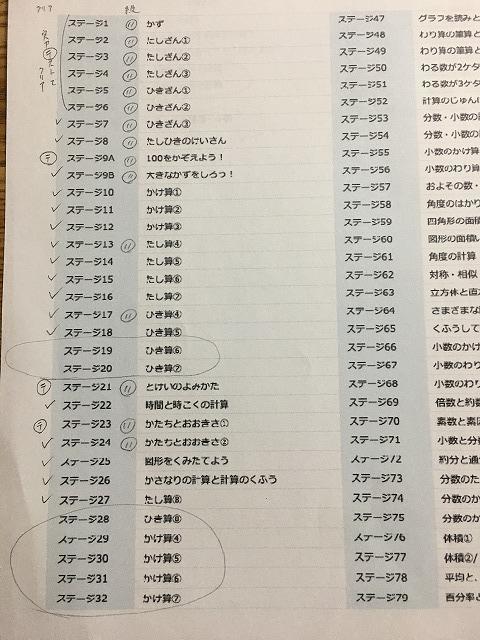 クリア
級
ステージ1 〃 かず
ステージ2 〃 たしざん①
ステージ3 〃 たしざん②
ステージ4 〃 たしざん③
ステージ5 〃 ひきざん①
ステージ6 〃 ひきざん②
ステージ7 〃 ひきざん③
ステージ8 〃 たしひきのけいさん
テ ステージ9A 〃 100をかぞえよう！
ステージ9B 〃 大きなかずをしろっ！
ステージ10 かけ算①
ステージ11 かけ算②
ステージ12 かけ算③
ステージ13 〃 たし算④
ステージ14 たし算⑤
ステージ15 たし算⑥
ステージ16 たし算⑦
ステージ17 〃 ひき算④
ステージ18 ひき算⑤
ステージ19 ひき算⑥
ステージ20 ひき算⑦
テ ステージ21 〃 とけいのよみかた
ステージ22 時間と時こくの計算
テ ステージ23 〃 かたちとおおきさ①
ステージ24 〃 かたちとおおきさ②
ステージ25 図形をくみたてよう
ステージ26 かさなりの計算と計算のくふう
ステージ27 たし算⑧
ステージ28 ひき算⑧
ステージ29 かけ算④
ステージ30 かけ算⑤
ステージ31 かけ算⑥
ステージ32 かけ算⑦
ステージ47 グラフを読みと
ステージ48 わり算の筆算と
ステージ49 わり算の筆算と
ステージ50 わる数が2ケタ
ステージ51 わる数が3ケタ
ステージ52 計算のじゅん
ステージ53 分数・小数の
ステージ54 分数・小数の
ステージ55 小数のかけ算
ステージ56 小数のわり算
ステージ57 およその数・
ステージ58 角度のはかり
ステージ59 四角形の面積
ステージ60 図形の面積
ステージ61 角度の計算
ステージ62 対称・相似
ステージ63 立方体と直
ステージ64 さまざまな
ステージ65 くふうして
ステージ66 小数のかけ
ステージ67 小数のわり
ステージ68 小数のわり
ステージ69 倍数と約数
ステージ70 素数と素因
ステージ71 小数と分
ステージ72 約分と通
ステージ73 分数のた
ステージ74 分数のか
ステージ75 分数のか
ステージ76 体積①
ステージ77 体積②/
ステージ78 平均と、
ステージ79 百分率と